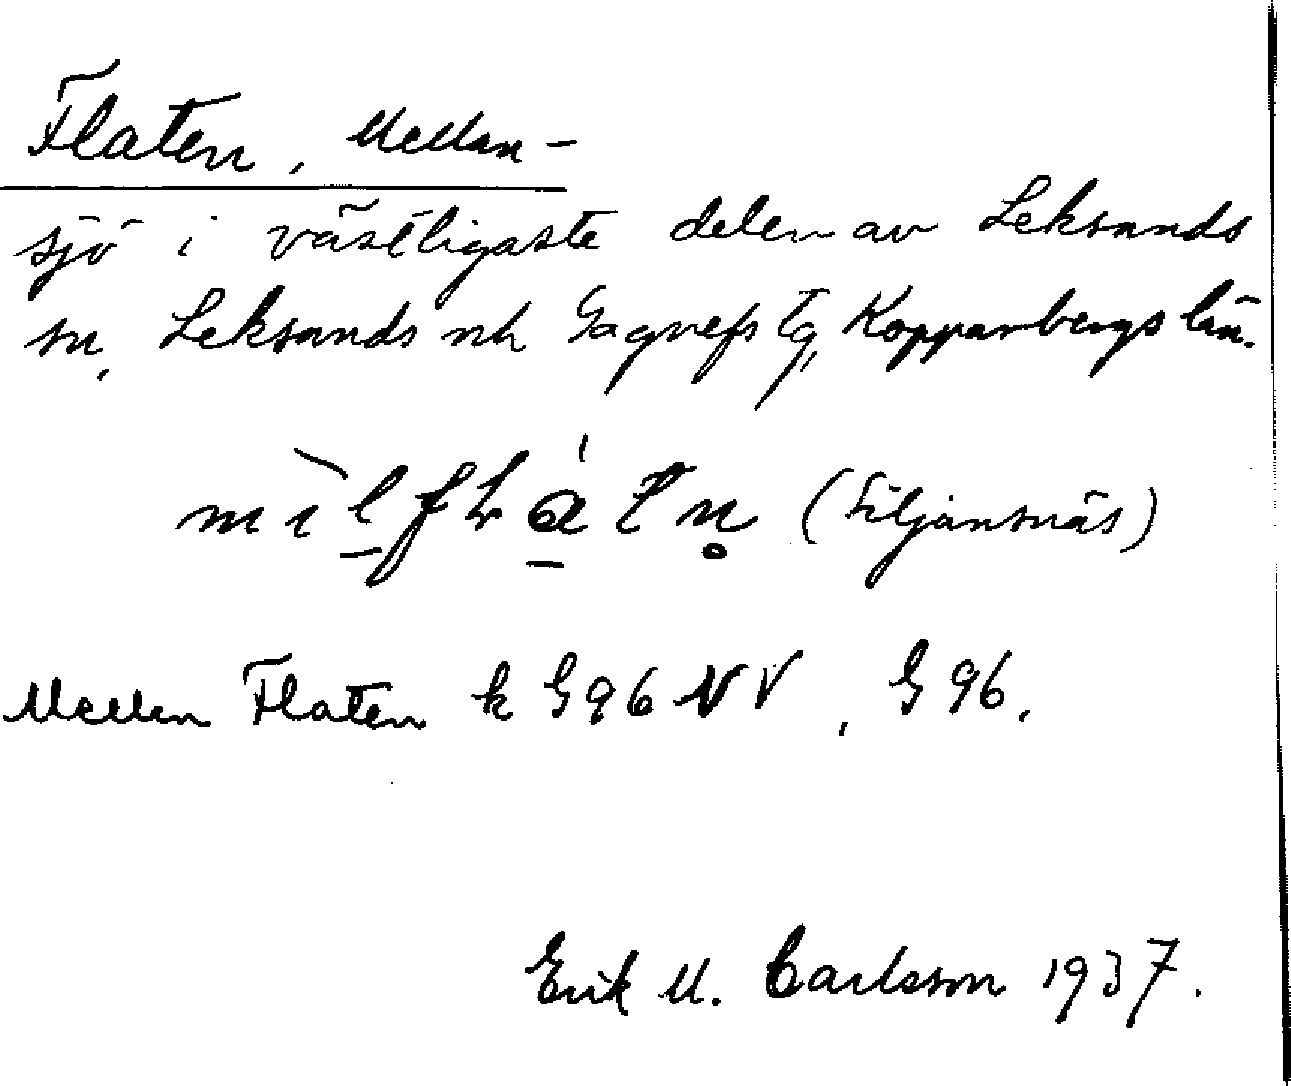 Flaten, Mellan-
sjö i västligaste delen av Leksands
sn, Leksands och Gagnefs tg, Kopparbergs län.
(Siljansnäs)
Mellan Flaten k G96 NV, G 96.
Erik M. Carlsson 1937.